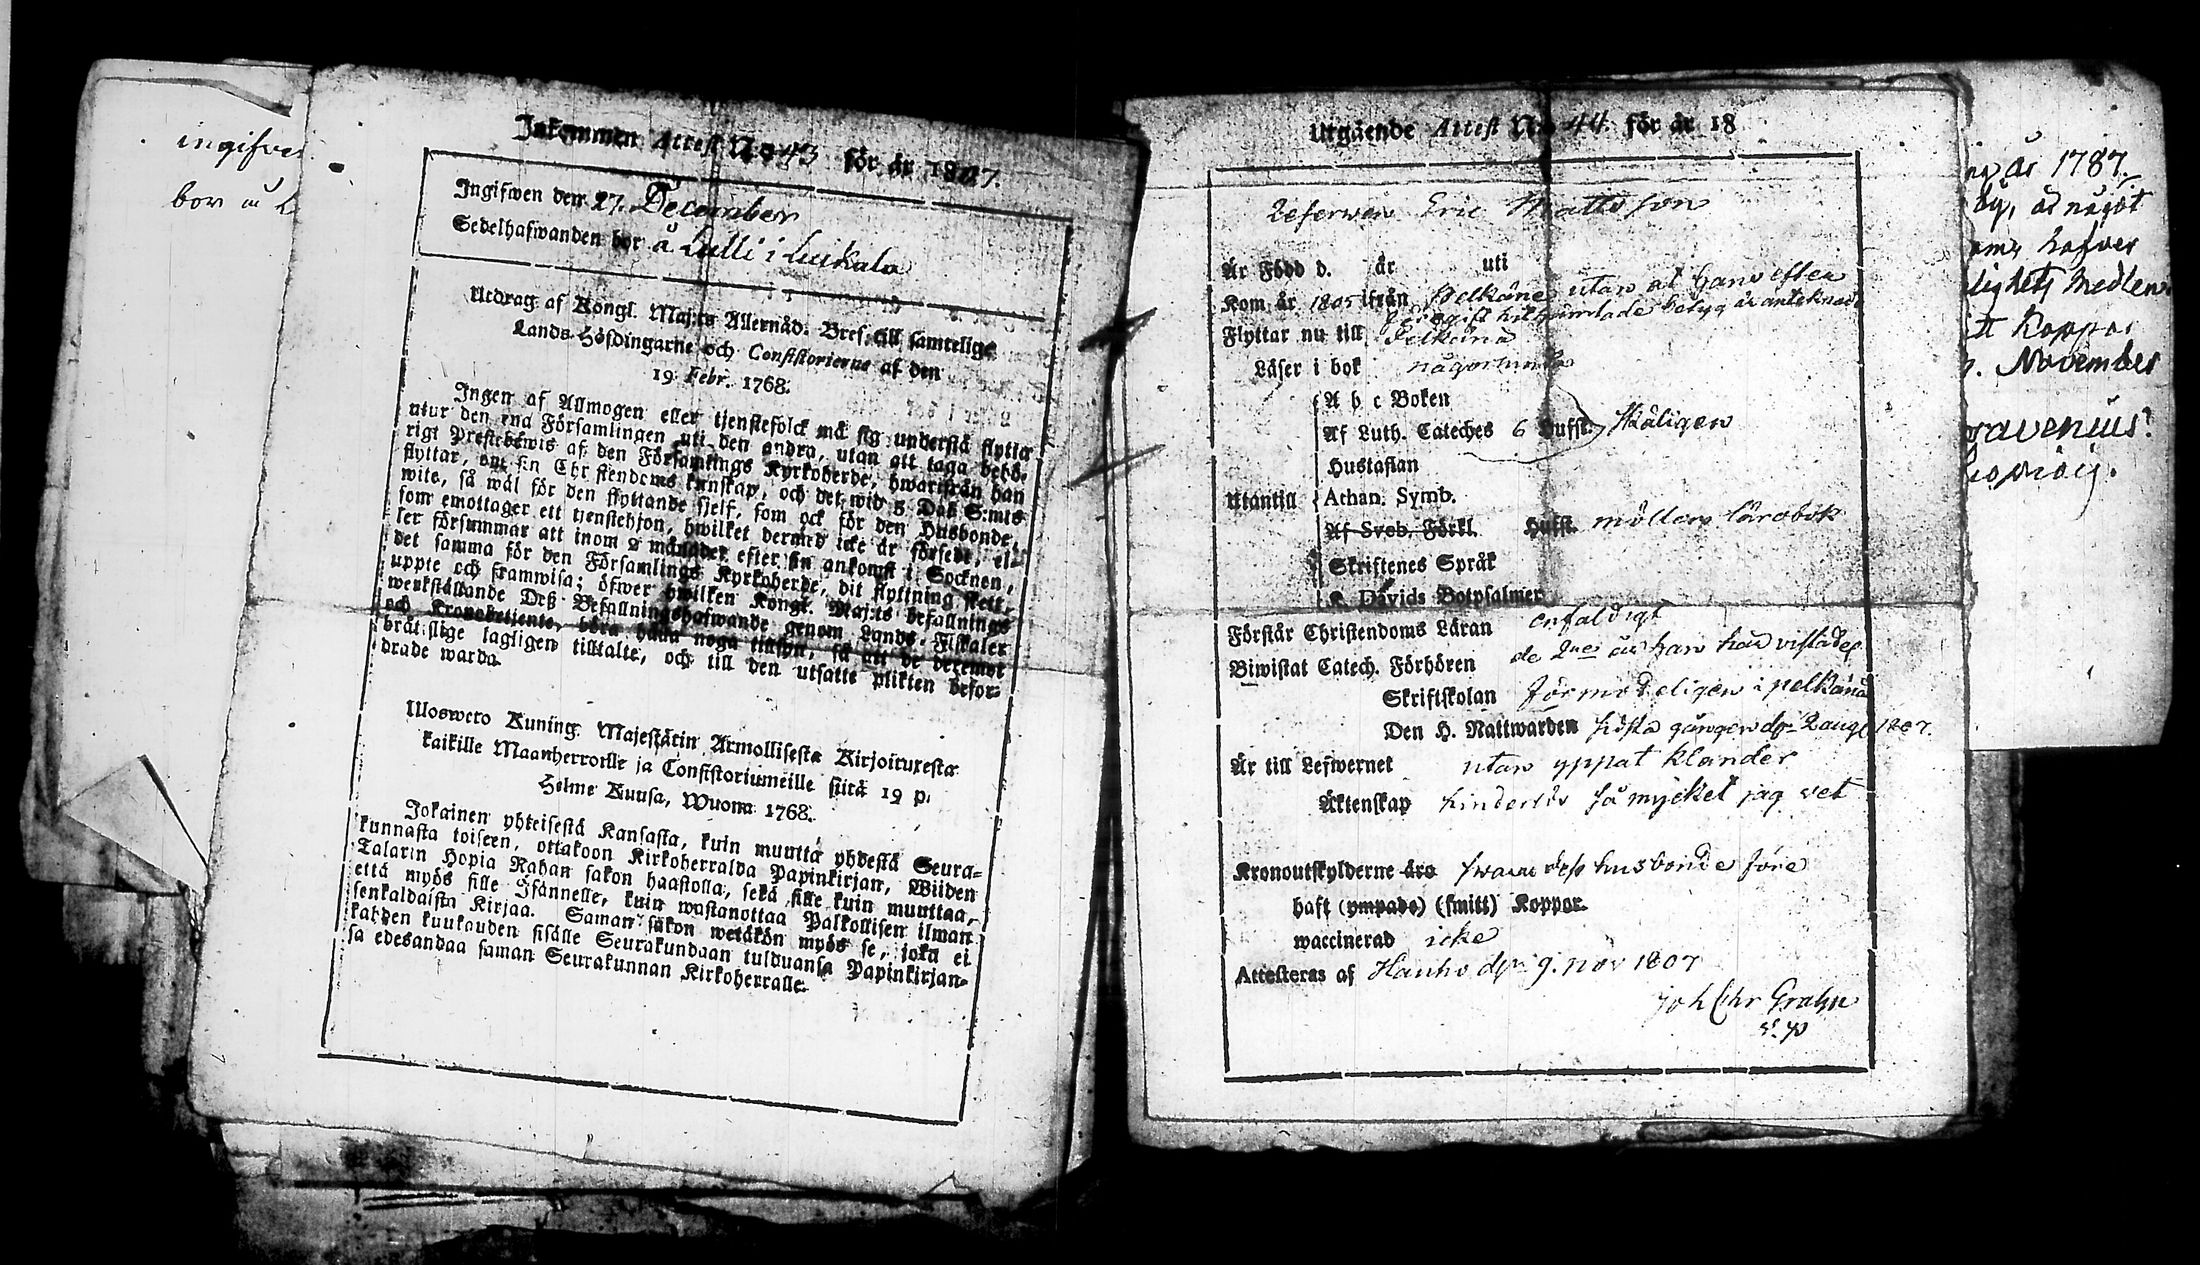 ingifven
bor å L
Inkommen Attest No 43 för år 1807.
Ingifwen den 27. December
Sedelhafwanden bor å Lulli i Luikala
Utdrag af Kongl. Maj:ts Allernåd. Bref till samtelige
Lands-Höfdingarne och Consistorierne af den
19 Febr. 1768.
Ingen af Allmogen eller tjenstefolck må sig understå flytta
utur den ena Församlingen uti den andra, utan att taga behö-
rigt Prestebewis af den Församlings Kyrkoherde, hwarifrån han
flyttar, om sin Christendoms kunskap, och det wid 5 Dal. S:mts
wite, så wäl för den flyttande sjelf, som ock för den Husbonde,
som emottager ett tjenstehjon, hwilket dermed icke är försedt, el-
ler försummar att inom 2 månader efter sin ankomst i Socknen,
det samma för den Församlings Kyrkoherde, dit flyttning skett,
uppte och framwisa; öfwer hwilken Kongl. Maj:ts befallnings
werkställande Deß Befallningshafwande genom Lands-Fiskaler
och Kronobetjente, böra hafwa noga tillsyn, så att de deremot
bråtslige lagligen tilltalte, och till den utsatte plikten befor-
drade warda.
Uloswero Kuning. Majestätin Armollisesta Kirjoituxesta
kaikille Maanherroille ja Consistoriumeille siitä 19 p.
Helme Kuusa, Wuonna 1768.
Jokainen yhteisestä Kansasta, kuin muuttaa yhdestä Seura-
kunnasta toiseen, ottakoon Kirkoherralda Papinkirjan, Wiiden
Talarin Hopia Rahan sakon haastolla, sekä sille kuin muuttaa,
että myös sille Isännelle, kuin wastanottaa Palkollisen ilman
senkaldaista Kirjaa. Saman sakon wetäkön myös se, joka ei
kahden kuukauden sisälle Seurakundaan tulduansa Papinkirjan-
sa edesandaa saman Seurakunnan Kirkoherralle.
Utgående Attest No 44. för år 18
Eric Mattsson
Är Född d. år uti
Kom år 1805 ifrån Pelkäne utan at hans eften
betyg är antecknad
Flyttar nu till Pelkäne
Läser i bok någorlunda
A b c Boken
Af Luth. Cateches 6 Hufst. skäligen
Hustaflan
Utantill Athan. Symb.
Af Sveb. Förkl. Hufst. möllers lärobok
Skriftenes Språk
K. Davids Botpsalmer
Förstår Christendoms Läran enfaldigt
Biwistat Catech. Förhören de 2ne år han här vistades
Skriftskolan förmodeligen i pelkäne
Den H. Nattwarden sista gången d. 2 aug 1807.
Är till Lefwernet utan yppat klander
Äktenskap hinderlös så mycket jag vet
Kronoutskylderne äro swarar dess husbonde före
haft (ympade) (smitt) Koppor
waccinerad icke
Attesteras af Hauho den 9. nov 1807
Joh Chr Grahn
v. p
år 1787.
dy, at något
hafver
lighets medlem
Koppor
November
ravenius.